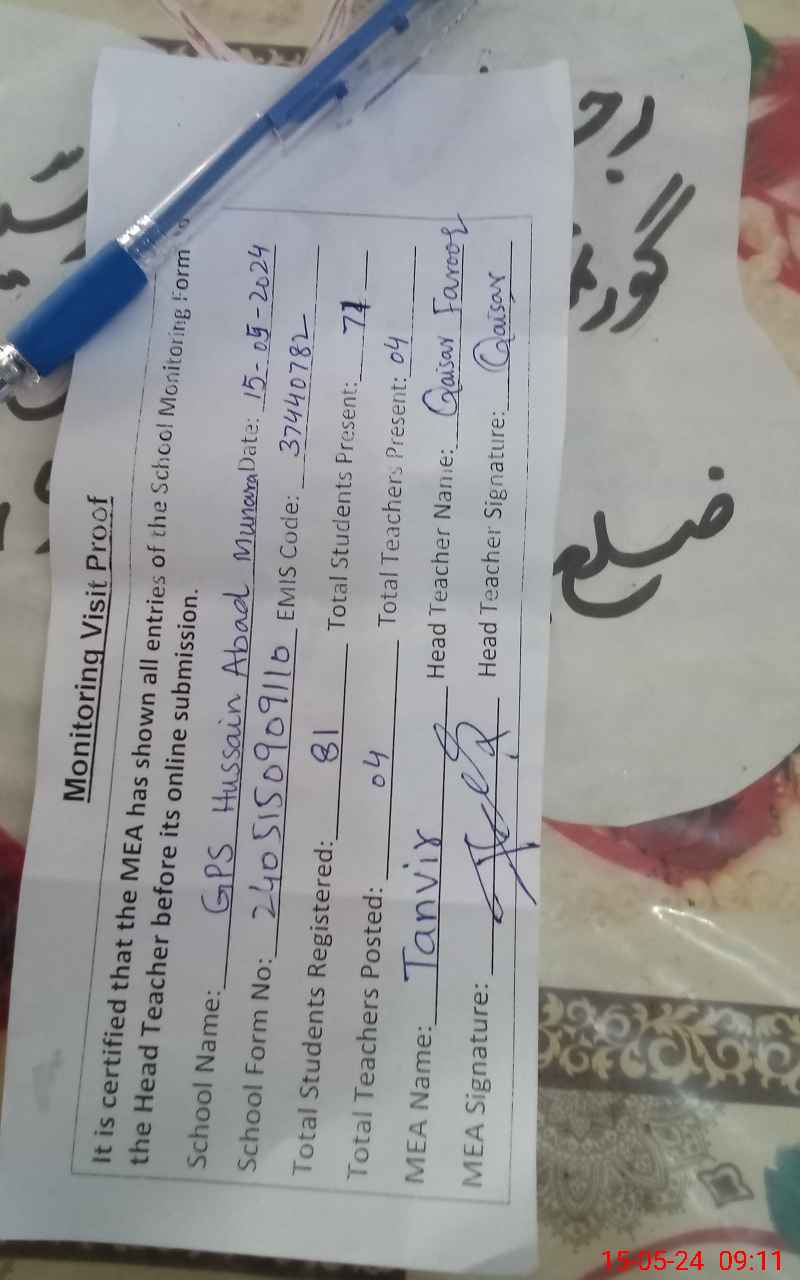 Monitoring Visit Proof
It is certified that the MEA has shown all entries of the School Monitoring Form to
the Head Teacher before its online submission.
School Name: GPS Hussain Abad Munara Date: 15-05-2024
School Form No: 2405150909110 EMIS Code: 37440782
Total Students Registered: 81 Total Students Present: 71
Total Teachers Posted: 04 Total Teachers Present: 04
MEA Name: Tanvir Head Teacher Name: Qaisar Farooq
MEA Signature: Head Teacher Signature: Qaisar
ضلع
15-05-24 09:11